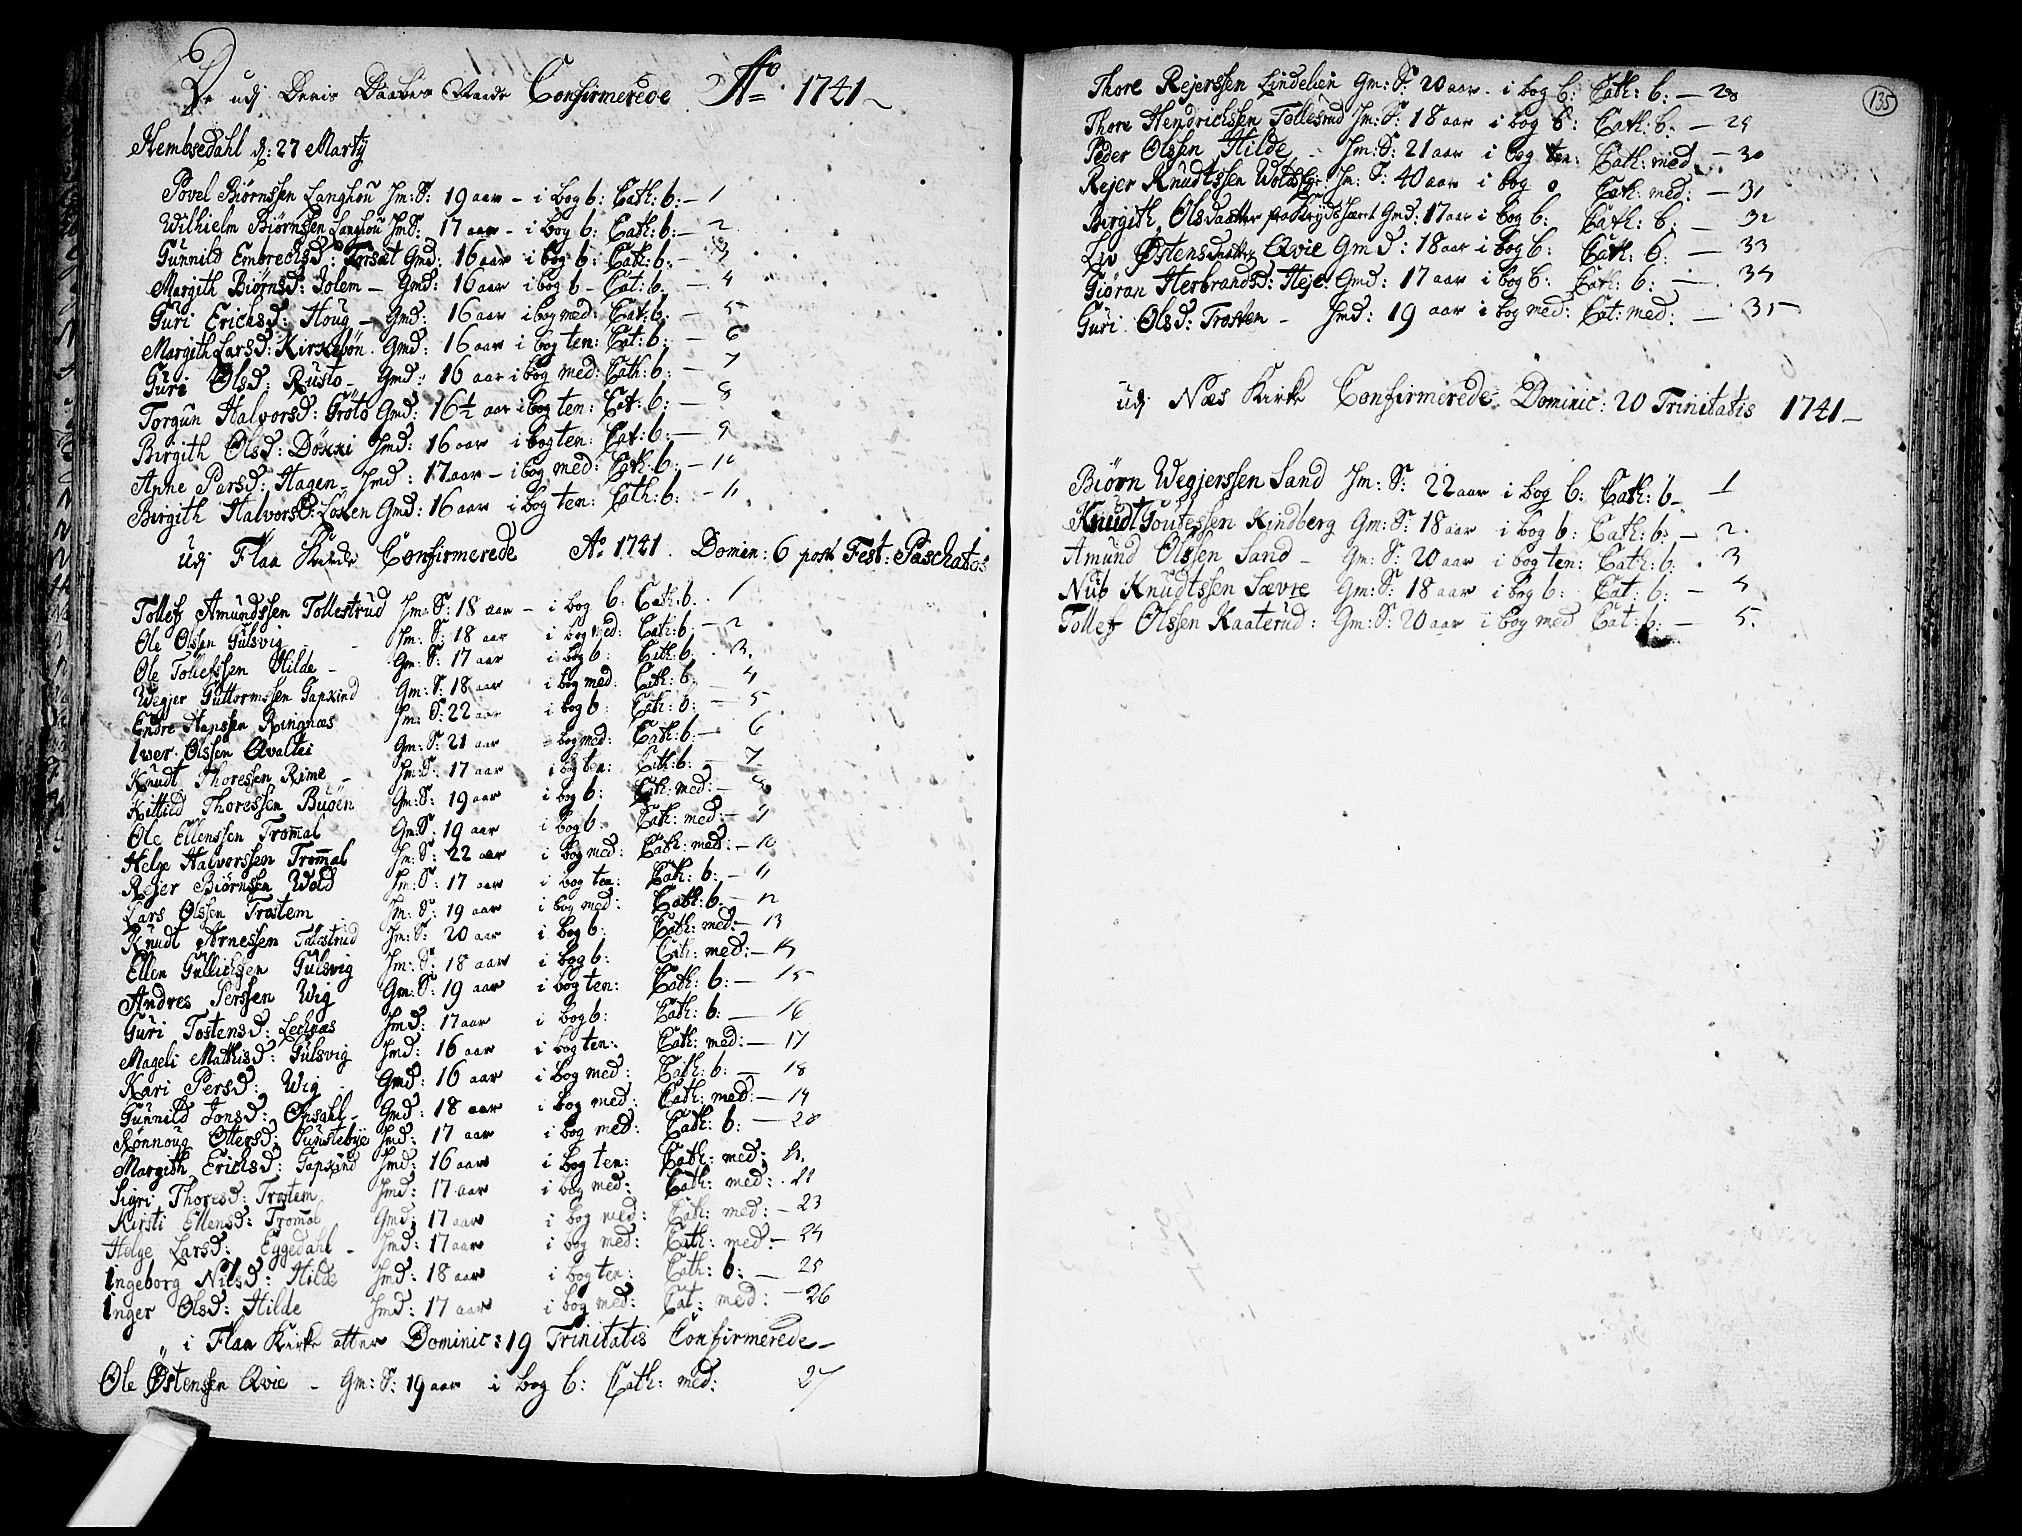 De udj Deris Daabes Naade Confirmerede Ao 1741
Hembsedahl d: 27 Martij
Povel Biørnssen Langhou Jm: S: 19 aar - i bog b: Cath: b: - 1
Wilhielm Biørnssen Langhou Jm: S: 17 aar - i bog b: Cath: b: - 2
Gunnild Embrechsd: Gmd: 16 aar i bog b: Cath: b: - 3
Margith Biørnsd: Jolem - Gmd: 16 aar i bog b - Cat: b: - 4
Guri Erichsd: Houg - Gmd: 16 aar i bog med: Cat: b: - 5
Margith Larsd: Kirkebøn. Gmd: 16 aar i bog ten: Cat: b: - 6
Guri Olsd: Rusto - Gmd: 16 aar i bog med: Cath: b: - 7
Torgun Halvorsd: Grøto Gmd: 16½ aar i bog ten: Cat: b: - 8
Birgith Olsd: Døkki Jmd: 16 aar i bog ten: Cat: b: - 9
Anne Parsd: Hagen - Jmd: 17 aar - i bog med: Cath: b: - 10
Birgith Halvorsd: Løken Gmd: 16 aar i bog ten: Cath: b: - 11
Udj Flaa Kirke Confirmerede Ao 1741. Domin: 6 post Fest: Paschatos
Tollef Amundssen Tollestrud Jm: S: 18 aar - i bog b: Cath: b. 1
Ole Olssen Gulsvig Jm: S: 18 aar i bog med: Cath: b: - 2
Ole Tollefssen Hilde - Gm: S: 17 aar i bog b: Cath: b. 3.
Wegjer Guttormssen Gapkind Gm: S: 18 aar i bog med: Cath: b: - 4
Endre Hanssen Ringnæs Jm: S: 22 aar i bog b: Cath: b: - 5
Iver Olssen Qvaltei Gm: S: 21 aar i bog med: Cath: b: - 6
Knudt Thoressen Rime - Jm: S: 17 aar i bog ten: Cath: b: - 7
Kittild Thoressen Bugøn Gm: S: 19 aar i bog b: Cth: med: - 8
Ole Ellenssen Trommal Gm: S: 19 aar i bog b: Cath: med: - 9
Helge Halvorssen Trommal Jm: S: 22 aar i bog med: Cath: med: - 10
Rejer Biørnssen Wold Jm: S: 17 aar i bog ten: Cath: b: - 11
Lars Olssen Trostem Jm: S: 19 aar i bog med: Cath: b: - 12
Knudt Arnessen Tollestrud Jm: S: 20 aar i bog b: Cath: med: - 13
Ellen Gullichsen Gulsvig Jm: S: 18 aar i bog b: Cath: med: - 14
Andres Perssen Wig Gm: S: 19 aar i bog ten: Cath: b: - 15
Guri Tostensd: Leknæs Jmd: 17 aar i bog b: Cath: b: - 16
Mageli Mathisd: Gulsvig Jmd: 16 aar i bog ten: Cath: med: - 17
Kari Persd: Wig - Gmd: 16 aar i bog med: Cath: b: - 18
Gunnild Jonsd: Opsahl - Gmd: 18 aar i bog med: Cath: med: - 19
Rønnoug Ottersd: Gunstebye Jmd: 17 aar i bog med: Cath: b: - 20
Margith Erichsd: Gapkind Jmd: 16 aar i bog ten: Cath: med: 21.
Sigri Thoresd: Trostem Jmd: 17 aar i bog med: Cath: med: . 22
Kirsti Ellensd: Trommal Gmd: 17 aar i bog med: Cath: med: - 23
Helge Larsd: Eggedahl - Jmd: 17 aar i bog med: Cath: med: - 24
Ingeborg Nilsd: Hilde Jmd: 18 aar i bog ten: Cath: b: - 25
Inger Olsd: Hilde Jmd: 17 aar i bog med: Cat: med: - 26
i Flaa Kirke atter Dominic: 19 Trinitatis Confirmerede -
Ole Østenssen Qvie - Gm: S: 19 aar i bog b: Cath: med: 27
135
Thore Rejerssen Lindelien Gm: S: 20 aar - i bog b: Cath: b: - 28
Thore Hendrichsen Tollesrud Jm: S: 18 aar i bog b: Cath: b. - 29
Peder Olssen Hilde - Jm: S: 21 aar i bog ten: Cath: med - 30
Rejer Knudtssen Jm: S: 40 aar i bog o Cath: med: - 31
Birgith Olsdaatter Gmd: 17 aar i bog b: Cath: b. - 32
Liv Østensdaatter Qvie Gmd: 18 aar i bog b: Cath: b. - 33
Giøran Herbrandsd: Heje Gmd: 17 aar i bog b: Cath: b: - . 34
Guri Olsd: Trosten - Jmd: 19 aar i bog med: Cat: med: - 35
udj Næs Kirke Confirmerede Dominic: 20 Trinitatis 1741 -
Biørn Wegjerssen Sand Jm: S: 22 aar i bog b: Cath: b - 1
Knudt Goutessen Kindberg Gm: S: 18 aar i bog b: Cath: b: - 2.
Amund Olssen Sand - Gm: S: 20 aar i bog ten: Cath: b. . 3
Nub Knudtssen Sævre Gm: S: 18 aar i bog b: Cat: b: - 4
Tollef Olssen Kaaterud: Gm: S: 20 aar i bog med Cat: b: - 5.